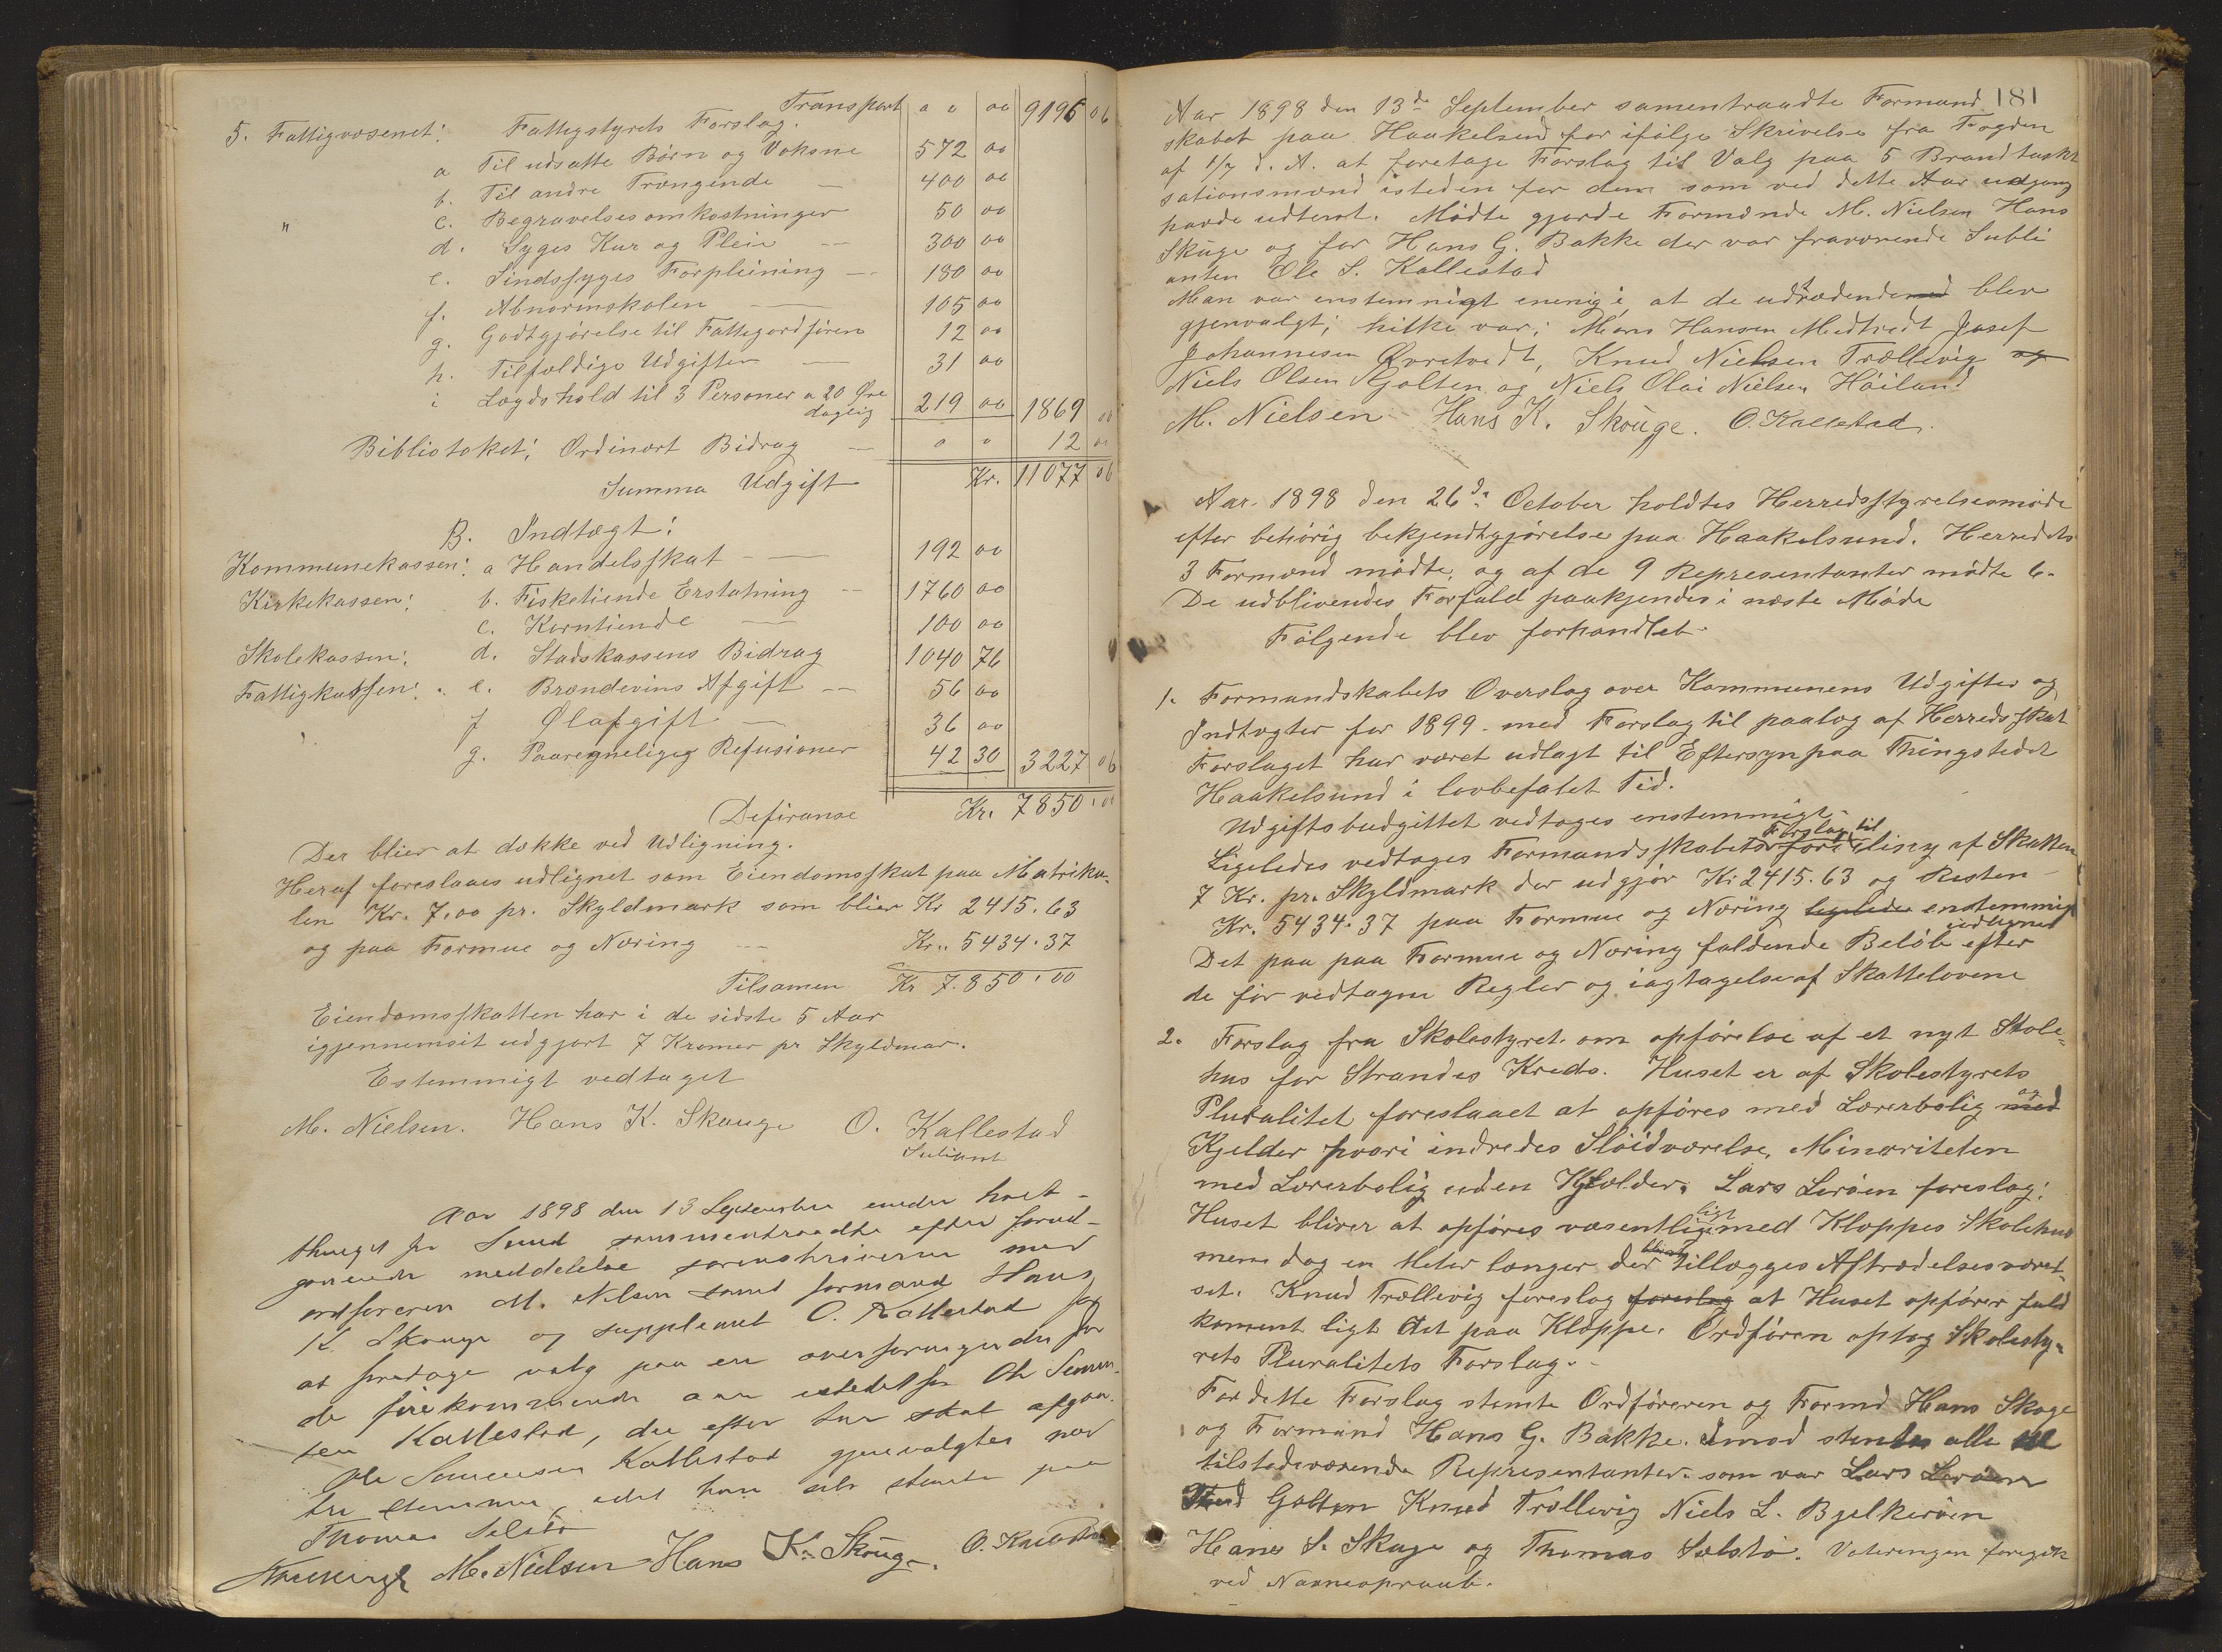 Transport " " 00 9196 06
5. Fattigvæsenet: Fattigstyrets Forslag.
a Til udsatte Børn og Voksne 572 00
b. Til andre Trængende — 400 00
" c. Begravelsesomkostninger 50 00
d. Syges Kur og Pleie — 300 00
e. Sindssyges Forpleining — 180 00
f. Abnormskolen — 105 00
g. Godtgjørelse til Fattigordføren 12 00
h. Tilfældige Udgifter — 31 00
i Lægdshold til 3 Personer a 20 Øre
daglig 219 00 1869 00
Bibliotoket: Ordinært Bidrag — " " 12 00
Summa Udgift Kr. 11077 06
B. Indtægt:
Kommunekassen: a Handelsskat — 192 00
Kirkekassen: b. Fisketiende Erstatning — 1760 00
c. Korntiende — 100 00
Skolekassen: d. Stadskassens Bidrag 1040 76
Fattigkassen: e. Brændevins Afgift — 56 00
f Ølafgift — 36 00
g. Paaregneligeg Refusioner 42 30 3227 06
Defiranse Kr. 7850.00
Der blier at dække ved Udligning.
Heraf foreslaaes udlignet som Eiendomsskat paa Matriku-
len Kr. 7,00 pr. Skyldmark som blier Kr 2415.63
og paa Formue og Næring — Kr. 5434.37
Tilsamen Kr 7.850.00
Eiendomsskatten har i de sidste 5 Aar
igjennemsit udgjort 7 Kroner pr Skyldmar.
Estemmigt vedtaget
M. Nielsen. Hans K. Skauge O. Kallestad
Suliant
Aar 1898 den 13 September under høst-
thinget for Sund sammentraadte efter forud-
gaaende meddelelse sorenskriveren med
ordføreren M. Nilsen samt formand Hans
K. Skauge og suppleant O. Kallestad for
at foretage valg paa en overformynder for
de fire kommende aar istedetfor Ole Simon-
sen Kallestad, der efter tur skal afgaa.
Ole Simonsen Kallestad gjenvalgtes med
tre stemmer, idet han selv stemte paa
Thomas Selstø
M. Nielsen Hans K. Skoug. O. Kallestad
181
Aar 1898 den 13de September samentraadte Formand
skabet paa Haakelsund for ifølge Skrivelse fra Fogden
af 1/7 d. A. at foretage Forslag til Valg paa 5 Brandtaskt
sationsmænd isteden for dem som ved dette Aar udgang
havde udtent. Mødte gjorde Formænde M. Nielsen Hans
Skuge og for Hans G. Bakke der var fraværende Subli
anten Ole S. Kallestad
Man var enstemnigt enerig i, at de udtrædende blev
gjenvalgt; hilke var; Mons Hansen Midtvedt Josef
Johannesen Øvretvedt, Knud Nielsen Trællevig og
Niels Olsen Golten og Niels Olai Nielsen Høiland
M. Nielsen Hans K. Skouge. O. Kallestad.
Aar 1898 den 26de October holdtes Herredsstyrelsesmøde
efter behørig bekjendtgjørelse paa Haakelsund. Herredets
3 Formænd mødte, og af de 9 Representanter mødte 6.
De udblivendes Forfald paakjendes i næste Møde
Følgende blev forhandlet.
1. Formandskabets Overslag over Kommunens Udgifter og
Indtægter for 1899. med Forslag til paalæg af Herredsskat
Forslaget har været udlagt til Eftersyn paa Thingstedet
Haakelsund i lovbefalet Tid.
Udgiftsbudgittet vedtoges enstemmigt.
Ligeledes vedtoges Formandsskabets Forslag til af Skatten
7 Kr. pr. Skyldmark der udgjør Kr 2415.63 og Resten
Kr. 5434.37 paa Formue og Næring ligeledes enstemmig
Det paa paa Formue og Næring faldende Beløb udlignes efter
de før vedtagne Regler og iagtagelse af Skattelovene
2. Forslag fra Skolestyret om opførelse af et nyt Skole-
hus for Strandes Kreds. Huset er af Skolestyrets
Pluralitet foreslaaet at opføres med Lærerbolig og med
Kjelder hvori indredes Sløidværelse, Minoriteten
med Lærerbolig uden Kjelder. Lars Lerøen foreslog:
Huset bliver at opføres væsentlig ligt med Kloppes Skolehus
men dog en Meter længer der tillægges Aftrædelsesværel-
set. Knud Trællevig foreslog foreslog at Huset opfører fuld
koment ligt det paa Kloppe. Ordføren optog Skolesty-
rets Pluralitets Forslag.
For dette Forslag stemte Ordføreren og Formd Hans Skoge
og Formand Hans G. Bakke. Imod stemte alle
tilstedeværende Representanter. som var Lars Lerøen
Golten Knud Trællevig Niels L. Bjelkerøen
Hans S. Skage og Thomas Selstø. Voteringen foregik
ved Navneopraab.